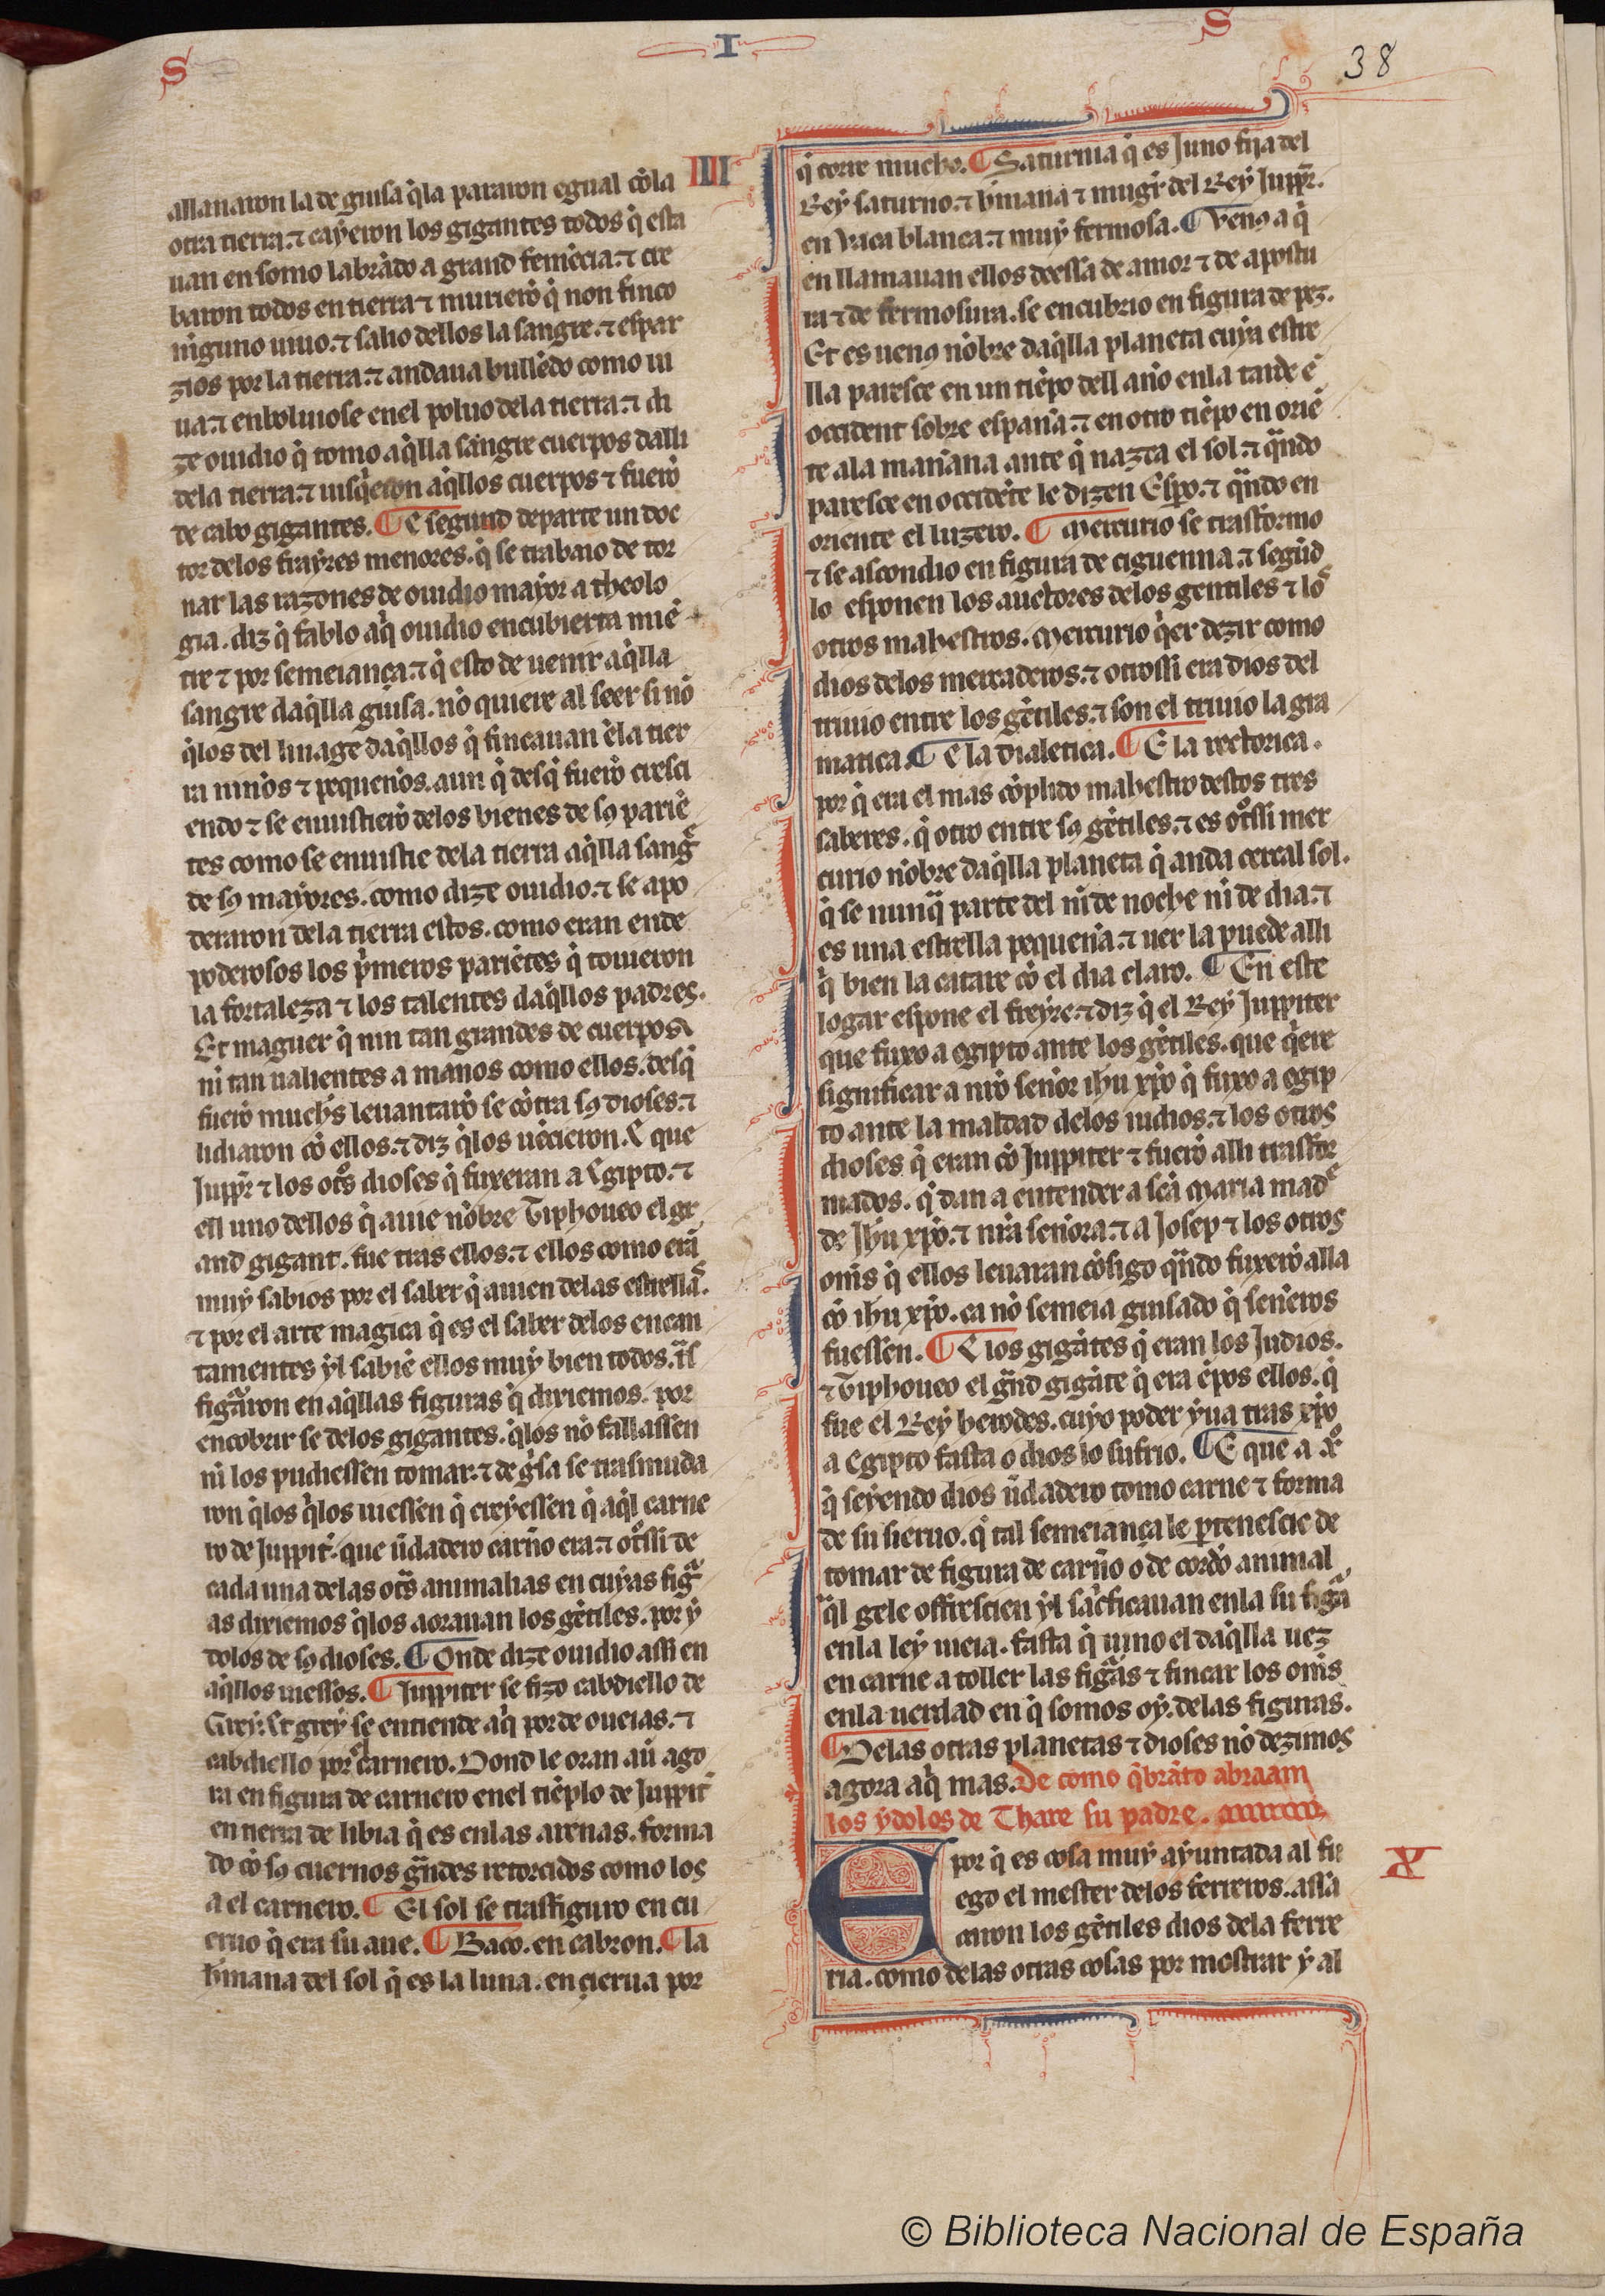 S
I
S
38
IIII
allanaron la de guisa q̇la pararon egual cõla
otra tierra. ⁊ cayeron los gigantes todos q̇ esta
uan en somo labrãdo a grand femẽcia. ⁊ cre
baron todos en tierra ⁊ murierõ q̇ non finco
ninguno uiuo. ⁊ salio dellos la sangre. ⁊ espar
zios por la tierra. ⁊ andaua bullẽdo como ui
ua. ⁊ enboluiose enel poluo dela tierra. ⁊ di
ze ouidio q̇ tomo aq̇lla sangre cuerpos dalli
dela tierra. ⁊ uisq̇eron aq̇llos cuerpos ⁊ fuerõ
de cabo gigantes. ¶ E segund departe un doc
tor delos frayres menores. q̇ se trabaio de tor
nar las razones de ouidio mayor a theolo
gia. diz q̇ fablo aq̇ ouidio encubierta miẽ
tre ⁊ por semeiança. ⁊ q̇ esto de uenir aq̇lla
sangre daq̇lla guisa. nõ quiere al seer si nõ
q̇los del linage daq̇llos q̇ fincauan ẽla tier
ra niños ⁊ pequeños. aun q̇ desq̇ fuerõ cresci
endo ⁊ se enuistierõ delos bienes de sꝯ pariẽ
tes como se enuistie dela tierra aq̇lla sangͤ
de sꝯ mayores. como dize ouidio. ⁊ se apo
deraron dela tierra estos. como eran ende
poderosos los pͥmeros pariẽtes q̇ touieron
la fortaleza ⁊ los talentes daq̇llos padres.
Et maguer q̇ nin tan grandes de cuerpos
ni tan ualientes a manos como ellos. desq̇
fuerõ muchͦs leuantarõ se cõtra sꝯ dioses. ⁊
lidiaron cõ ellos. ⁊ diz q̇los uẽcieron. E que
Juppꝛ̃ ⁊ los otͦs dioses q̇ fuxeran a Egipto. ⁊
ell uno dellos q̇ auie nõbre Tiphoueo el gr
and gigant. fue tras ellos. ⁊ ellos como erã
muy sabios por el saber q̇ auien delas estrellaˢ.
⁊ por el arte magica q̇ es el saber delos encan
tamentes yl sabiẽ ellos muy bien todos. tͣs
figᷓaron en aq̇llas figuras q̇ dixiemos. por
encobrir se delos gigantes. q̇los nõ fallassen
ni los pudiessen tomar. ⁊ de gͥsa se trasmuda
ron q̇los q̇los uiessen q̇ creyessen q̇ aq̇l carne
ro de Juppiť. que ũdadero carño era. ⁊ otͦssi de
cada una delas otͣs animalias en cuyas figᷓ
as dixiemos q̇los aorauan los gẽtiles. por y
dolos de sꝯ dioses. ¶ Onde dize ouidio assi en
aq̇llos uiessos. ¶ Juppiter se fizo cabdiello de
Grey. Et grey se entiende aq̇ por de oueias. ⁊
cabdiello por carnero. Dond le oran aũ ago
ra en figura de carnero enel tiẽplo de Juppiť
en tierra de libia q̇ es enlas arenas. forma
do cõ sꝯ cuernos gᷓndes retorcidos como los
a el carnero. ¶ El sol se trasfiguro en cu
eruo q̇ era su aue. ¶ Baco. en cabron. ¶ la
hͫmana del sol q̇ es la luna. en cierua por
q̇ corre mucho. ¶ Saturnia q̇ es Juno fija del
Rey saturno. ⁊ hͫmana ⁊ mugͬ del Rey Juppꝛ̃.
en uaca blanca. ⁊ muy fermosa. ¶ Venꝯ a q̇
en llamauan ellos deessa de amor ⁊ de apostu
ra ⁊ de fermosura. se encubrio en figura de pez.
Et es uenꝯ nõbre daq̇lla planeta cuya estre
lla paresce en un tiẽpo dell año enla tarde ẽ
occident sobre españa. ⁊ en otro tiẽpo en oriẽ
te ala mañana ante q̇ nazca el sol. ⁊ qᷓndo
paresce en occidẽte le dizen Espo. ⁊ qᷓndo en
oriente el luzero. ¶ Mercurio se trasformo
⁊ se ascondio en figura de ciguenna. ⁊ segũd
lo esponen los auctores delos gentiles ⁊ loˢ
otros mahestros. Mercurio q̇er dezir como
dios delos mercaderos. ⁊ otrossi era dios del
triuio entre los gẽtiles. ⁊ son el triuio la gra
matica. ¶ E la dialetica. ¶ E la rectorica.
por q̇ era el mas cõplido mahestro destos tres
saberes. q̇ otro entre sꝯ gẽtiles. ⁊ es otͦssi mer
curio nõbre daq̇lla planeta q̇ anda cerca el sol.
q̇ se nunqᷓ parte del ni de noche ni de dia. ⁊
es una estrella pequeña. ⁊ uer la puede alli
q̇ bien la catare cõ el dia claro. ¶ En este
logar espone el freyre. ⁊ diz q̇ el Rey Juppiter
que fuxo a egipto ante los gẽtiles. que q̇ere
significar a nrõ señor ihu xpõ q̇ fuxo a egip
to ante la maldad delos iudios. ⁊ los otros
dioses q̇ eran cõ Juppiter ⁊ fuerõ alli trasfor
mados. q̇ dan a entender a scã Maria madͤ
de Jhu xpõ. ⁊ nrã señora. ⁊ a Josep ⁊ los otros
om̃s q̇ ellos leuaran cõsigo qᷓndo fuxerõ alla
cõ ihu xpõ. ca nõ semeia guisado q̇ señeros
fuessen. ¶ E los gigãtes q̇ eran los Judios.
⁊ Tiphoueo el gᷓnd gigãte q̇ era ẽpos ellos. q̇
fue el Rey herodes. cuyo poder yua tras xpõ
a Egipto fasta o dios lo sufrio. ¶ E que a xͦ
q̇ seyendo dios ũdadero tomo carne ⁊ forma
de su sieruo. q̇ tal semeiança le ꝑtenescie de
tomar de figura de carño o de cordõ animal
qᷓl gele offrescien yl sacͥficauan enla su figᷓa
enla ley uieia. fasta q̇ uino el daq̇lla uez
en carne a toller las figᷓas ⁊ fincar los om̃s
enla uerdad en q̇ somos oy. delas figuras.
¶ Delas otras planetas ⁊ dioses nõ dezimos
agora aq̇ mas. De como q̇brãto abraam
los ydolos de Thare su padre.
E por q̇ es cosa muy ayuntada al fu
ego el mester delos ferreros. assa
caron los gẽtiles dios dela ferre
ria. como delas otras cosas por mostrar y al
X
© Biblioteca Nacional de España